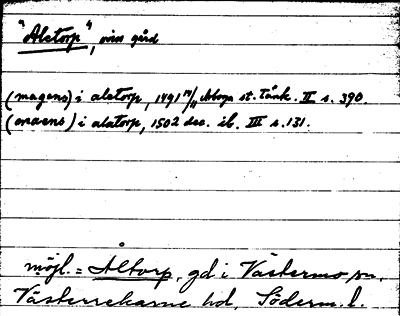 "Alstorp", viss gård
(magens) i alstorp, 1491 14/11 Arboga st. Tänk. II s. 390.
(onaens) i alstorp, 1502 dec. ib. III s. 131.
möjl. = Åltorp, gd i Västermo sn,
Västerrekarne hd, Söderm. l.